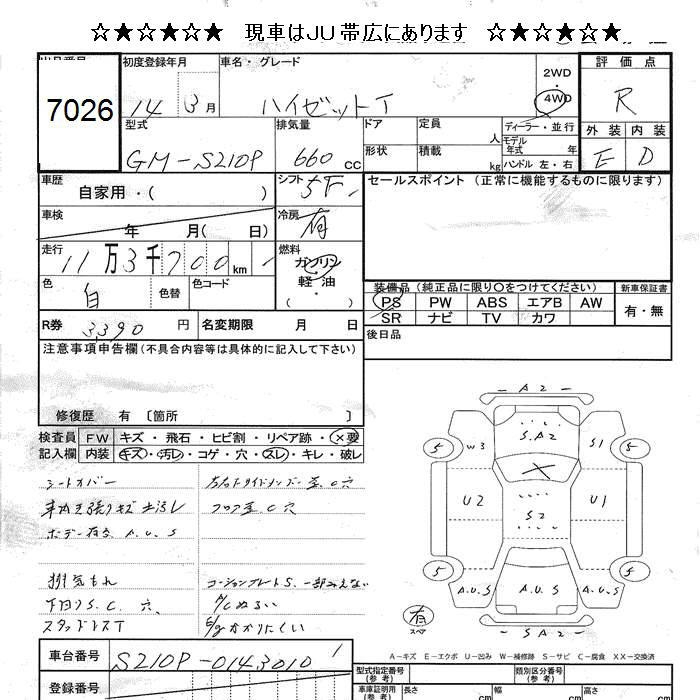 ☆★☆★☆★ 現車はJU帯広にあります ☆★☆★☆★
7026
初度登録年月 車名・グレード 評価点
14 3月 ハイゼットT 2WD 4WD R
型式 排気量 ドア 定員 人 ディーラー・並行 外装 内装
GM-S210P 660cc 形状 積載 kg モデル年式 年 ハンドル 左・右 E D
車歴 自家用・( ) シフト 5F セールスポイント (正常に機能するものに限ります)
車検 年 月( 日) 冷房 有
走行 11万3千700km 燃料 ガソリン・軽油
色 白 色替 色コード
装備品 (純正品に限り○をつけてください) 新車保証書
PS PW ABS エアB AW 有・無
SR ナビ TV カワ
R券 3390円 名変期限 月 日
後日品
注意事項申告欄(不具合内容等は具体的に記入して下さい)
修復歴 有 〔箇所 〕
検査員記入欄 FW キズ・飛石・ヒビ割・リペア跡・×要
内装 キズ・汚レ・コゲ・穴・スレ・キレ・破レ
シートカバー
フロア至.C穴
ボデー各A.U.S
排気もれ コーションプレートS.一部みえない
下回りS.C.穴 A/Cぬるい
スタッドレスT E/gかかりにくい
A2
SA2
W3 S1
U2 U1
S2
5 5 5 5
A.U.S A.U.S A.U.S
SA2
有 スペア
A-キズ E-エクボ U-凹み W-補修跡 S-サビ C-腐食 XX-交換済
車台番号 S210P-0143010
登録番号
型式指定番号(参考) 類別区分番号(参考)
車庫証明用(参考) 長さ cm 幅 cm 高さ cm